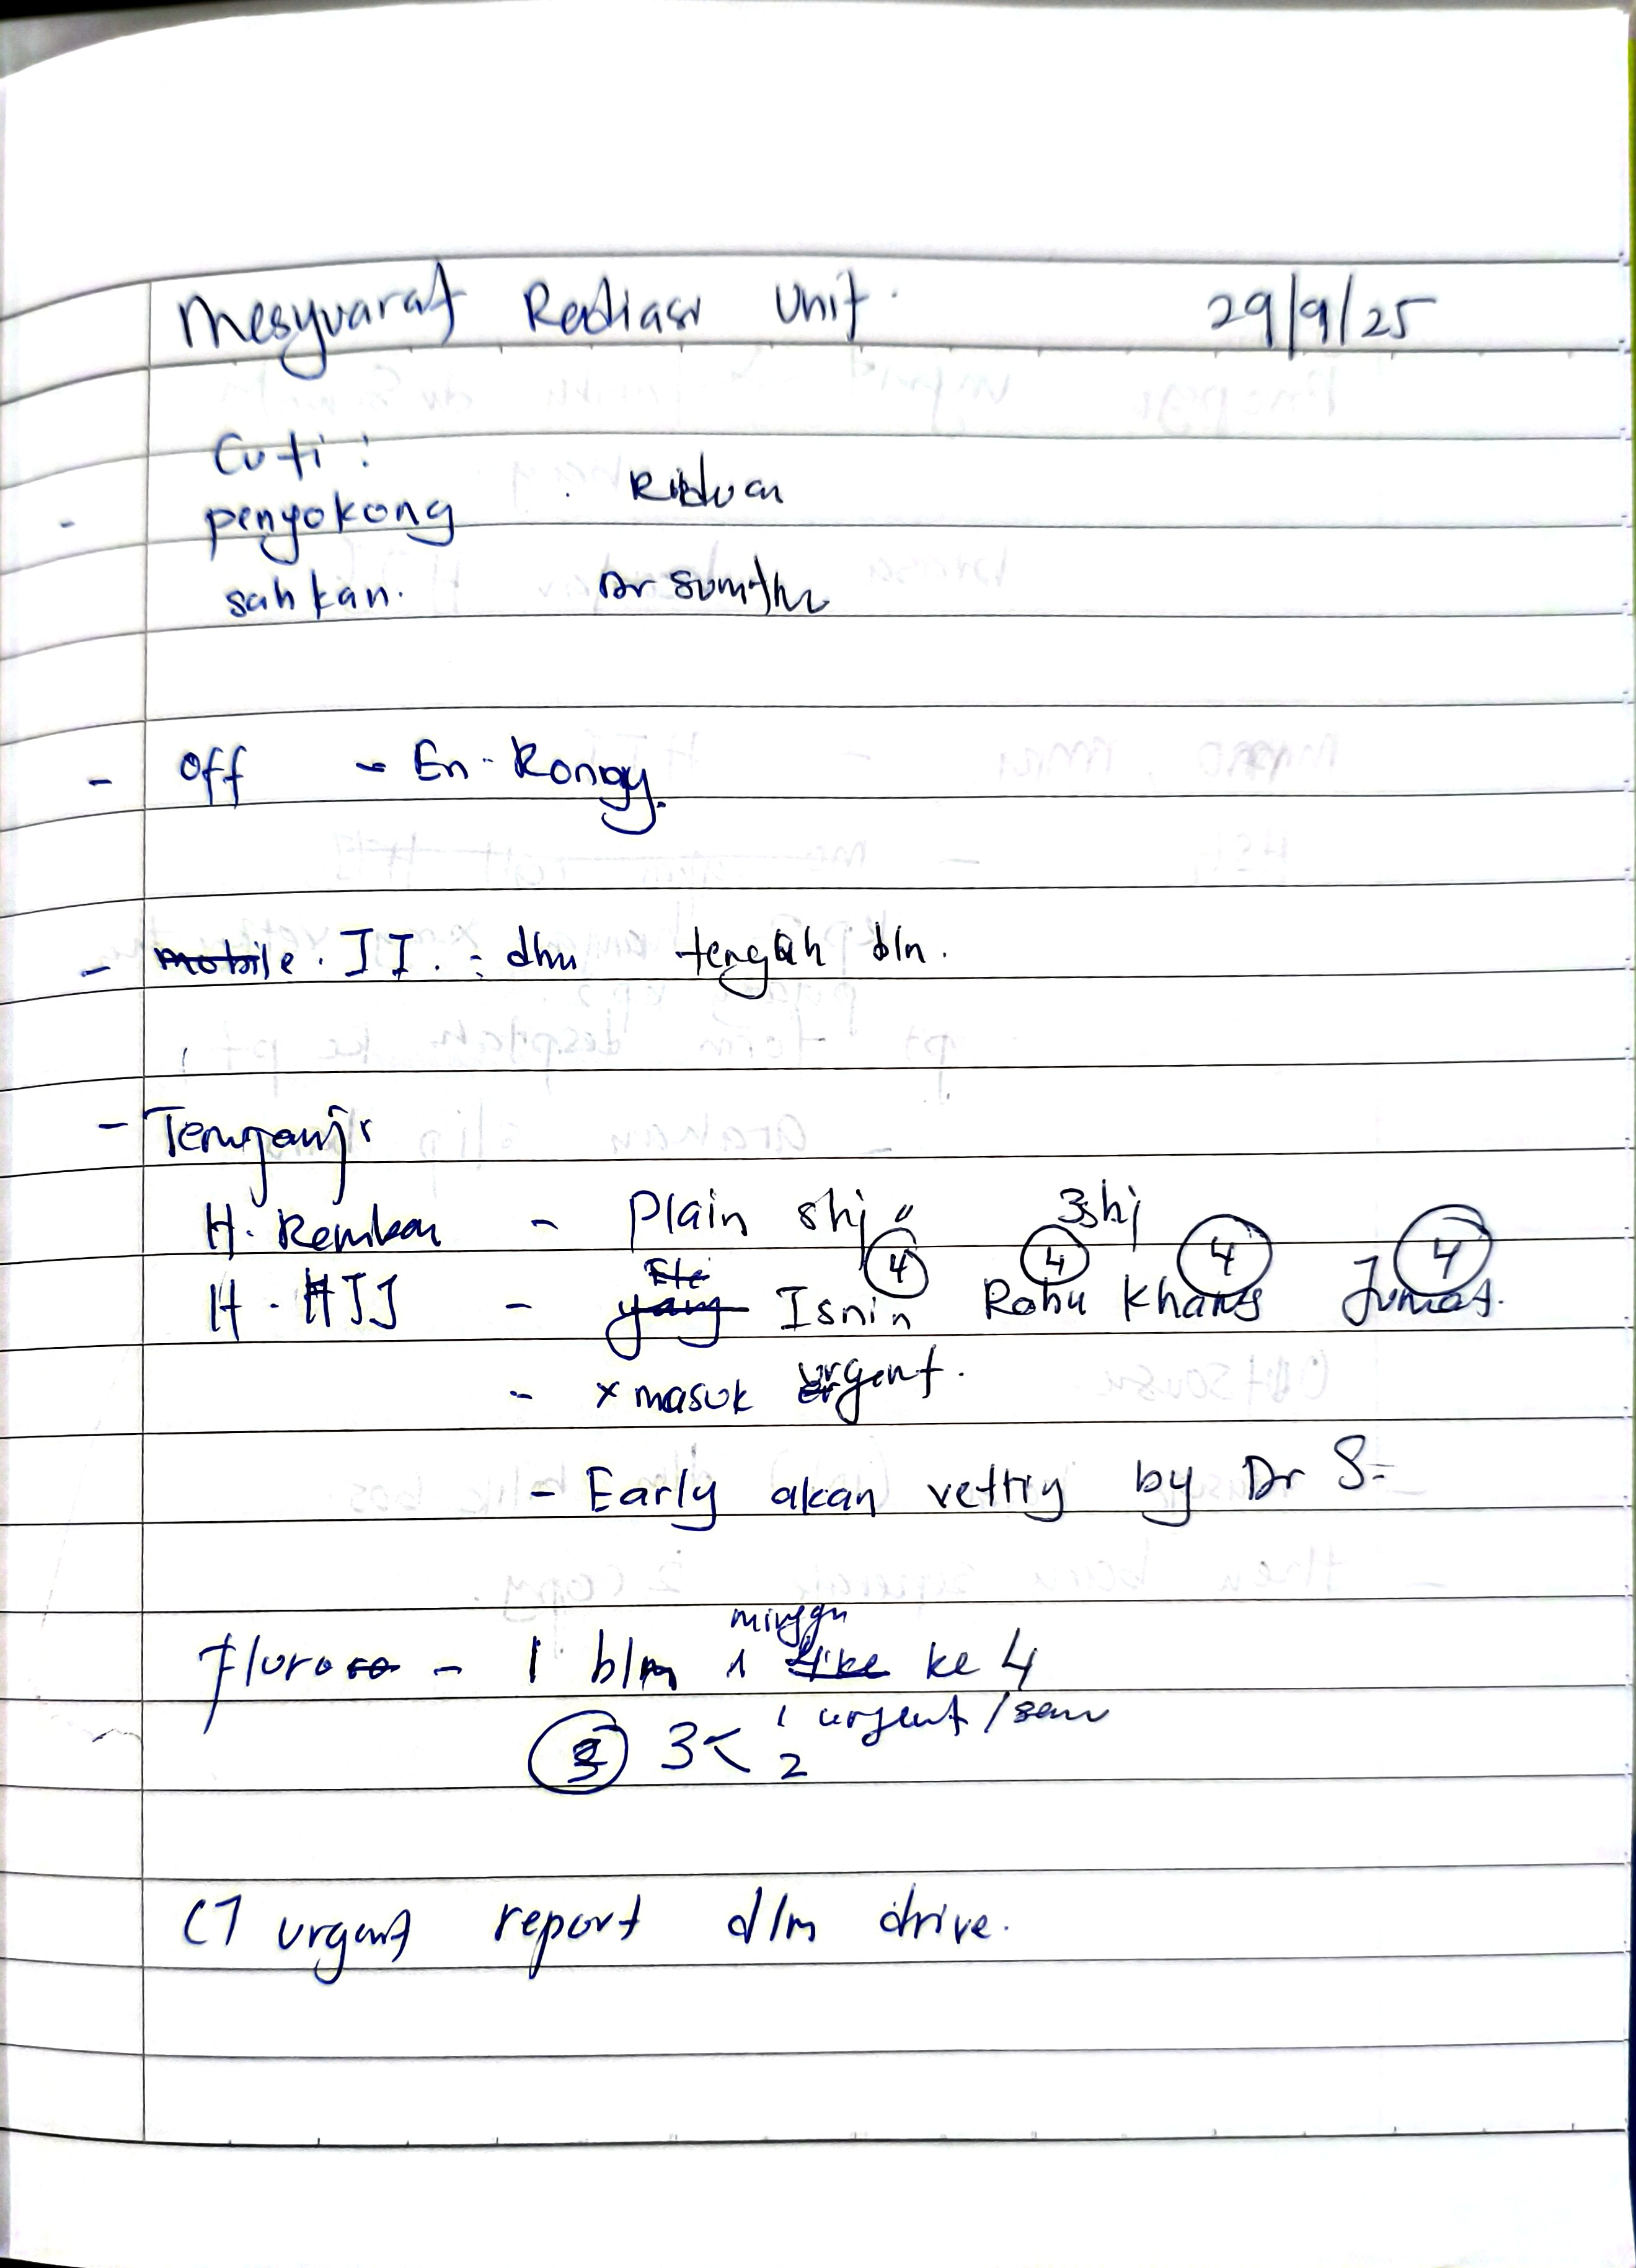 Mesyuarat Radiasi Unit. 29/9/25
Cuti :
- penyokong . Riduan
sahkan. Dr
- Off - En. Rongy.
- mobile. II. : tengah bln.
- Temujanji
H. Rembau - Plain shj 3shj
H. HJJ - yang Isnin ④ Rabu ④ Khamis ④ Jumat. ④
- x masuk urgent.
- Early akan vetting by Dr S
Fluro - 1 bln 1 minggu ke 4
3 3< 1 urgent /
2
CT urgent report dlm drive.